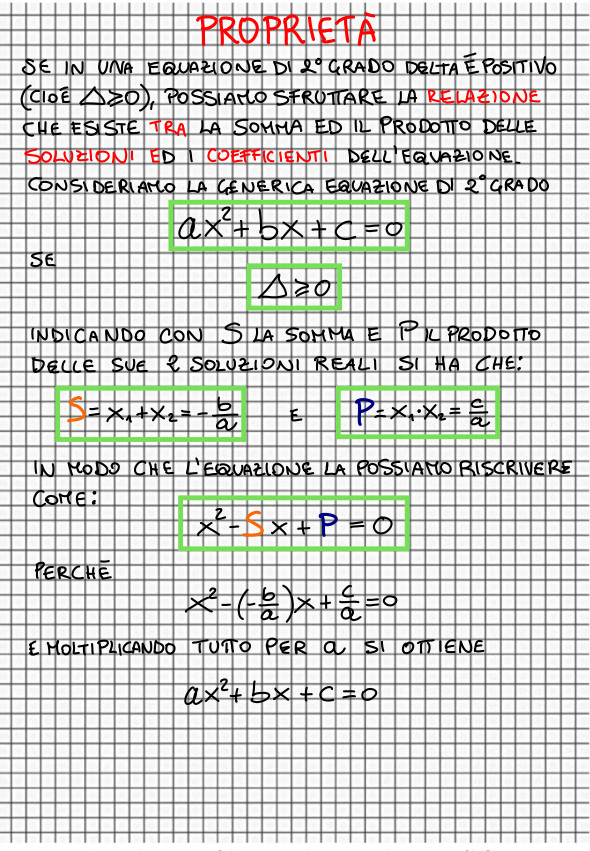 PROPRIETÀ
SE IN UNA EQUAZIONE DI 2° GRADO DELTA È POSITIVO
(CIOÈ Δ≥0), POSSIAMO SFRUTTARE LA RELAZIONE
CHE ESISTE TRA LA SOMMA ED IL PRODOTTO DELLE
SOLUZIONI ED I COEFFICIENTI DELL'EQUAZIONE.
CONSIDERIAMO LA GENERICA EQUAZIONE DI 2° GRADO
ax²+bx+c=0
SE
Δ≥0
INDICANDO CON S LA SOMMA E P IL PRODOTTO
DELLE SUE 2 SOLUZIONI REALI SI HA CHE:
S=x₁+x₂=-b/a E P=x₁·x₂=c/a
IN MODO CHE L'EQUAZIONE LA POSSIAMO RISCRIVERE
COME:
x²-Sx+P=0
PERCHÈ
x²-(-b/a)x+c/a=0
E MOLTIPLICANDO TUTTO PER a SI OTTIENE
ax²+bx+c=0